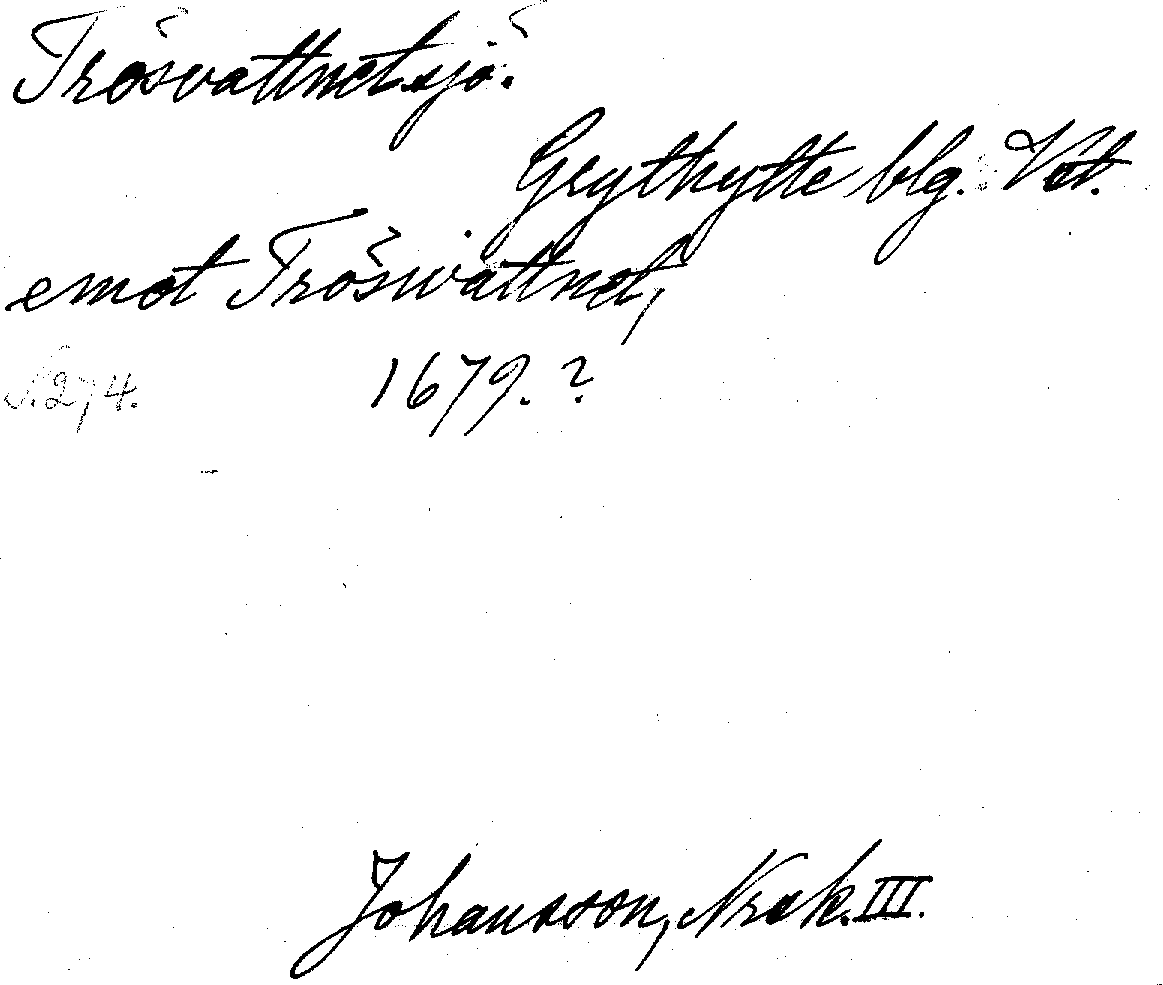 Trösvattnet sjö.
Grythytte blg. Vst.
emot Trösivattnet,
S. 274. 1679. ?
Johansson, Norak. III.